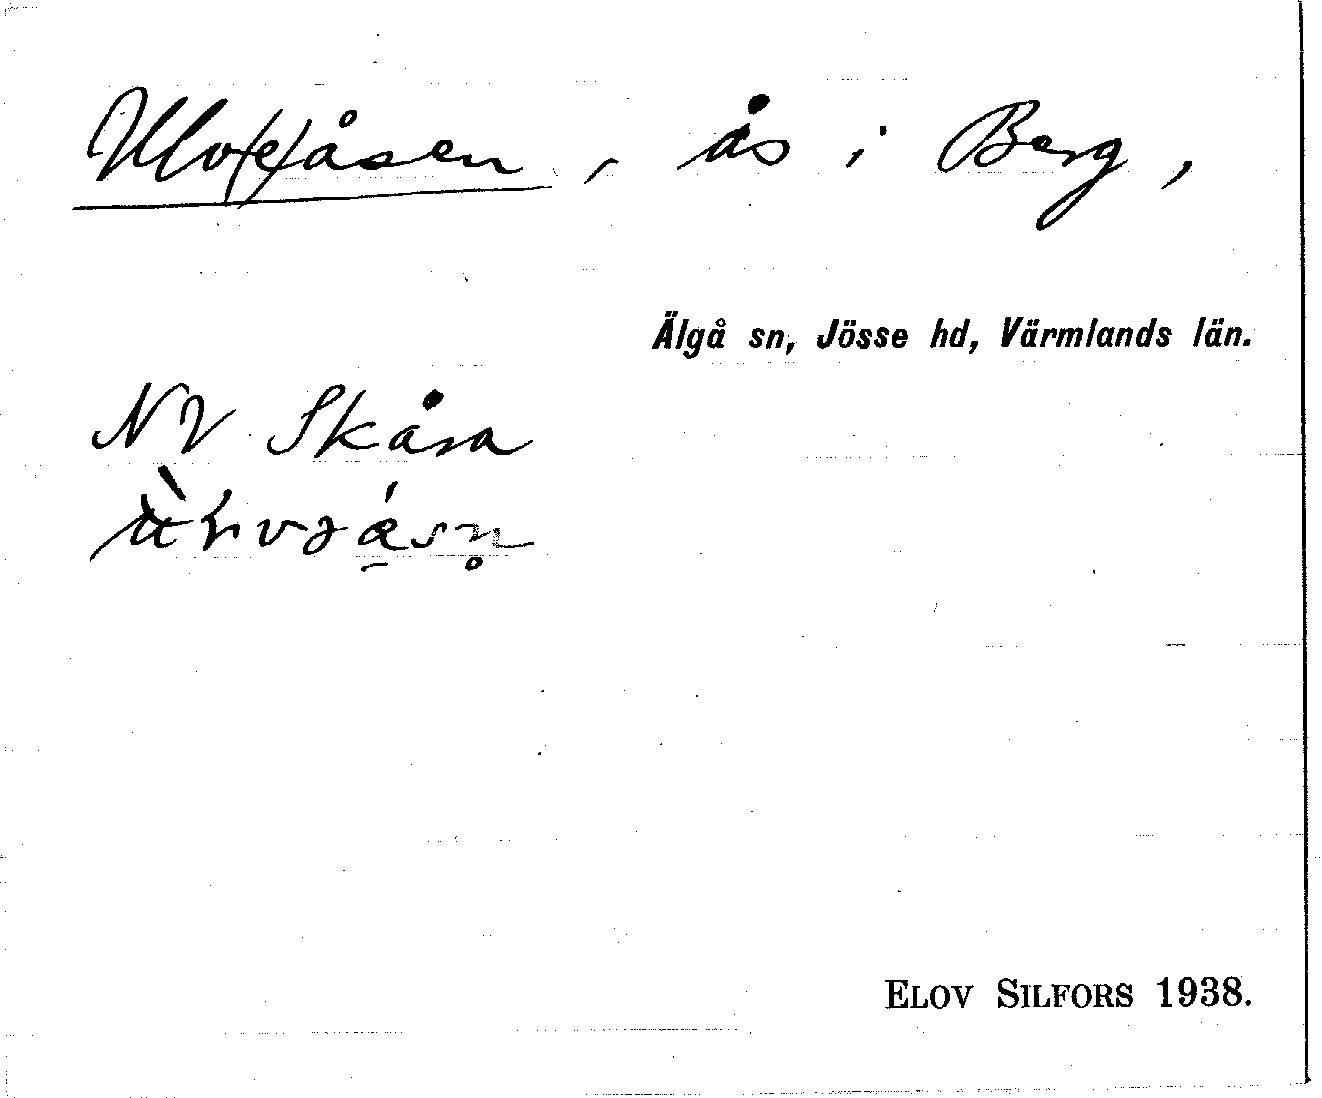 Ulv(e)åsen, ås i Berg,
Älgå sn, Jösse hd, Värmlands län.
NV Skåra
ELOV SILFORS 1938.